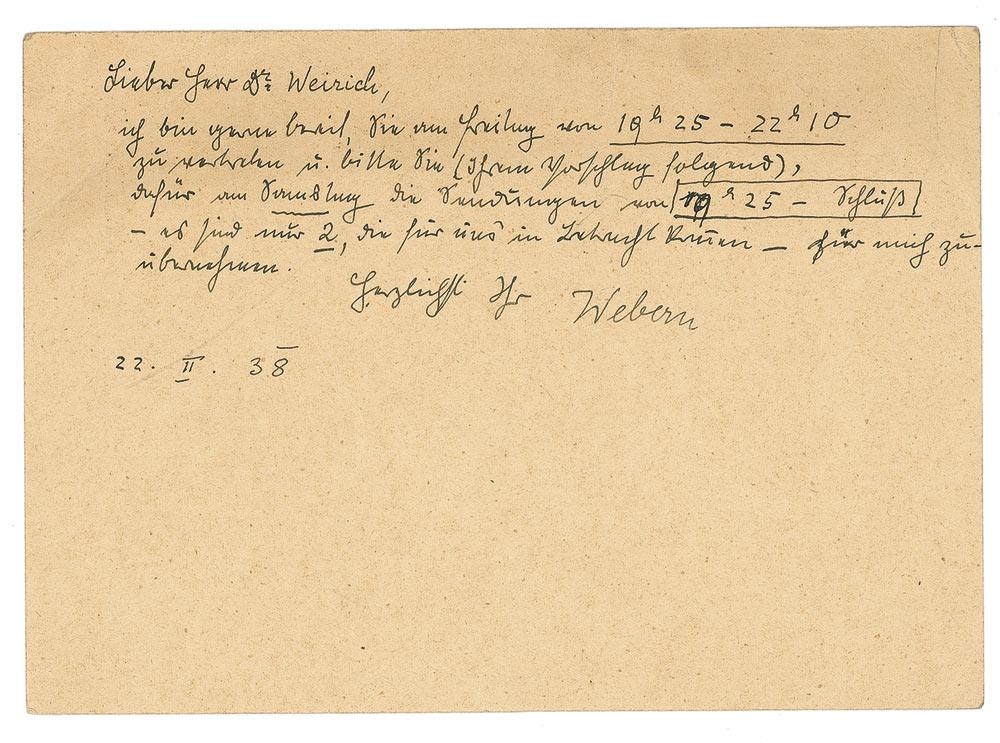 Lieber Herr Dr. Weirich,
ich bin gerne bereit, Sie am Freitag von 19 h 25 – 22 h 10
zu vertreten u. bitte Sie (Ihrem Vorschlag folgend),
dafür am Samstag die Sendungen von 19 h 25 – Schluß
– es sind nur 2, die für uns in Betracht kommen – für mich zu-
übernehmen.
Herzlichst Ihr Webern
22. II. 38